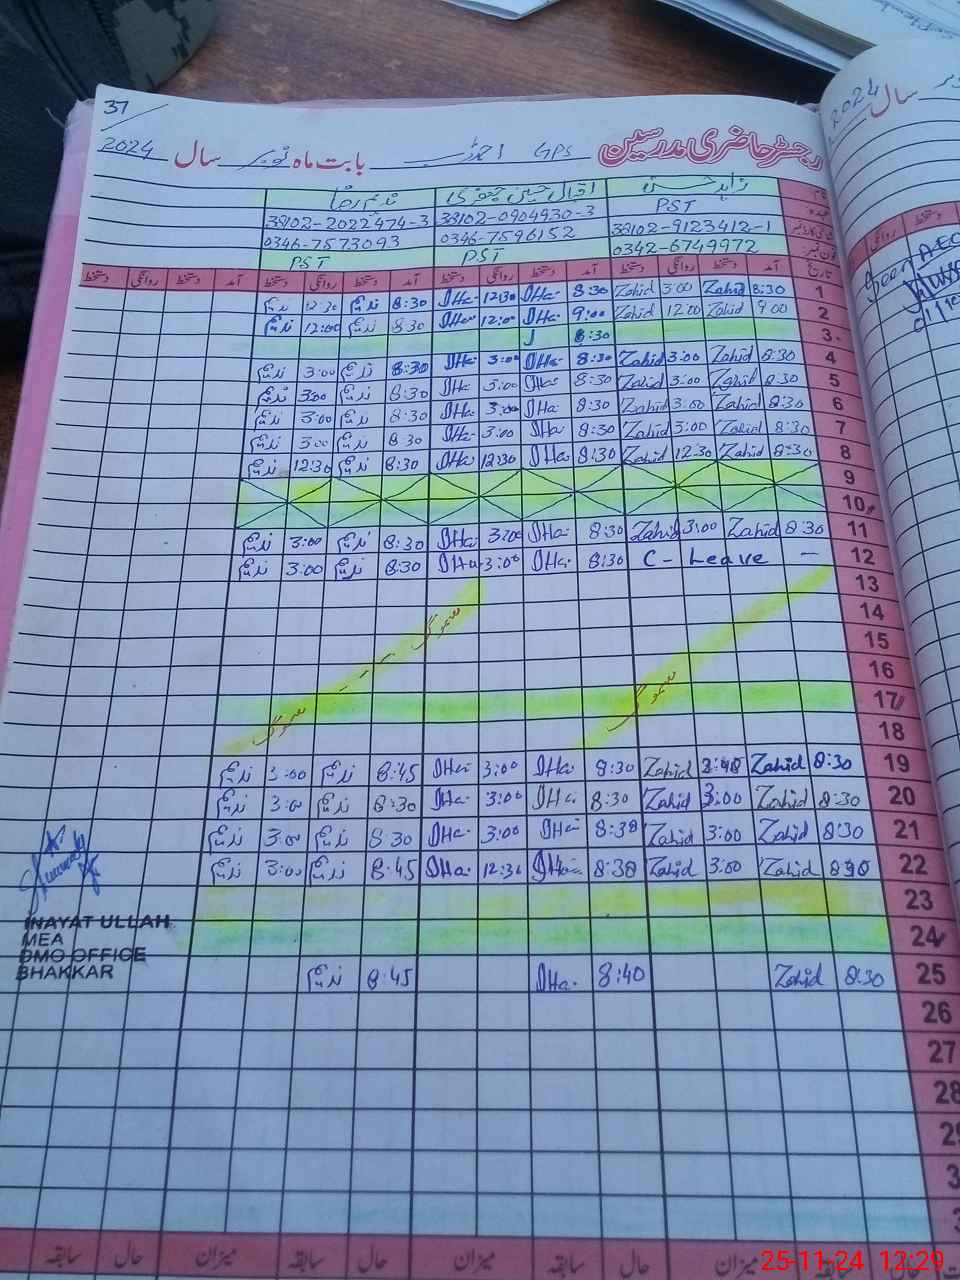 37
رجسٹر حاضری مدرسین GPS بابت ماہ نومبر سال 2024
زاہد حسن اقبال حسین جعفری ندیم رضا
PST
38102-9123412-1 38102-0904930-3 38102-2022474-3
0342-6749972 0346-7596152 0346-7573093
PST PST
تاریخ آمد دستخط روانگی دستخط آمد دستخط روانگی دستخط آمد دستخط روانگی دستخط آمد دستخط روانگی دستخط
1 8:30 Zahid 3:00 Zahid 8:30 IHa. 12:30 IHa. 8:30 ندیم 12:30 ندیم
2 9:00 Zahid 12:00 Zahid 9:00 IHa. 12:00 IHa. 8:30 ندیم 12:00 ندیم
3 8:30
4 8:30 Zahid 3:00 Zahid 8:30 IHa. 3:00 IHa. 8:30 ندیم 3:00 ندیم
5 8:30 Zahid 3:00 Zahid 8:30 IHa. 3:00 IHa. 8:30 ندیم 3:00 ندیم
6 8:30 Zahid 3:00 Zahid 8:30 IHa. 3:00 IHa. 8:30 ندیم 3:00 ندیم
7 8:30 Zahid 3:00 Zahid 8:30 IHa. 3:00 IHa. 8:30 ندیم 3:00 ندیم
8 8:30 Zahid 12:30 Zahid 8:30 IHa. 12:30 IHa. 8:30 ندیم 12:30 ندیم
9
10
11 8:30 Zahid 3:00 Zahid 8:30 IHa. 3:00 IHa. 8:30 ندیم 3:00 ندیم
12 C - Leave — 8:30 IHa. 3:00 IHa. 8:30 ندیم 3:00 ندیم
13
14
سموگ - - - سموگ
15
16
سموگ
17
18
19 8:30 Zahid Zahid 8:30 IHa. 3:00 IHa. 8:45 ندیم 3:00 ندیم
20 8:30 Zahid 3:00 Zahid 8:30 IHa. 3:00 IHa. 8:30 ندیم 3:00 ندیم
21 8:30 Zahid 3:00 Zahid 8:30 IHa. 3:00 IHa. 8:30 ندیم 3:00 ندیم
22 8:30 Zahid 3:00 Zahid 8:30 IHa. 12:30 IHa. 8:45 ندیم 3:00 ندیم
23
24
25 8:30 Zahid 8:40 IHa. 8:45 ندیم
26
27
28
29
INAYAT ULLAH
MEA
DMO OFFICE
BHAKKAR
سابقہ حال میزان سابقہ حال میزان سابقہ حال میزان سابقہ
2024 سال
روانگی دستخط
Seen
AEO
25-11-24 12:29